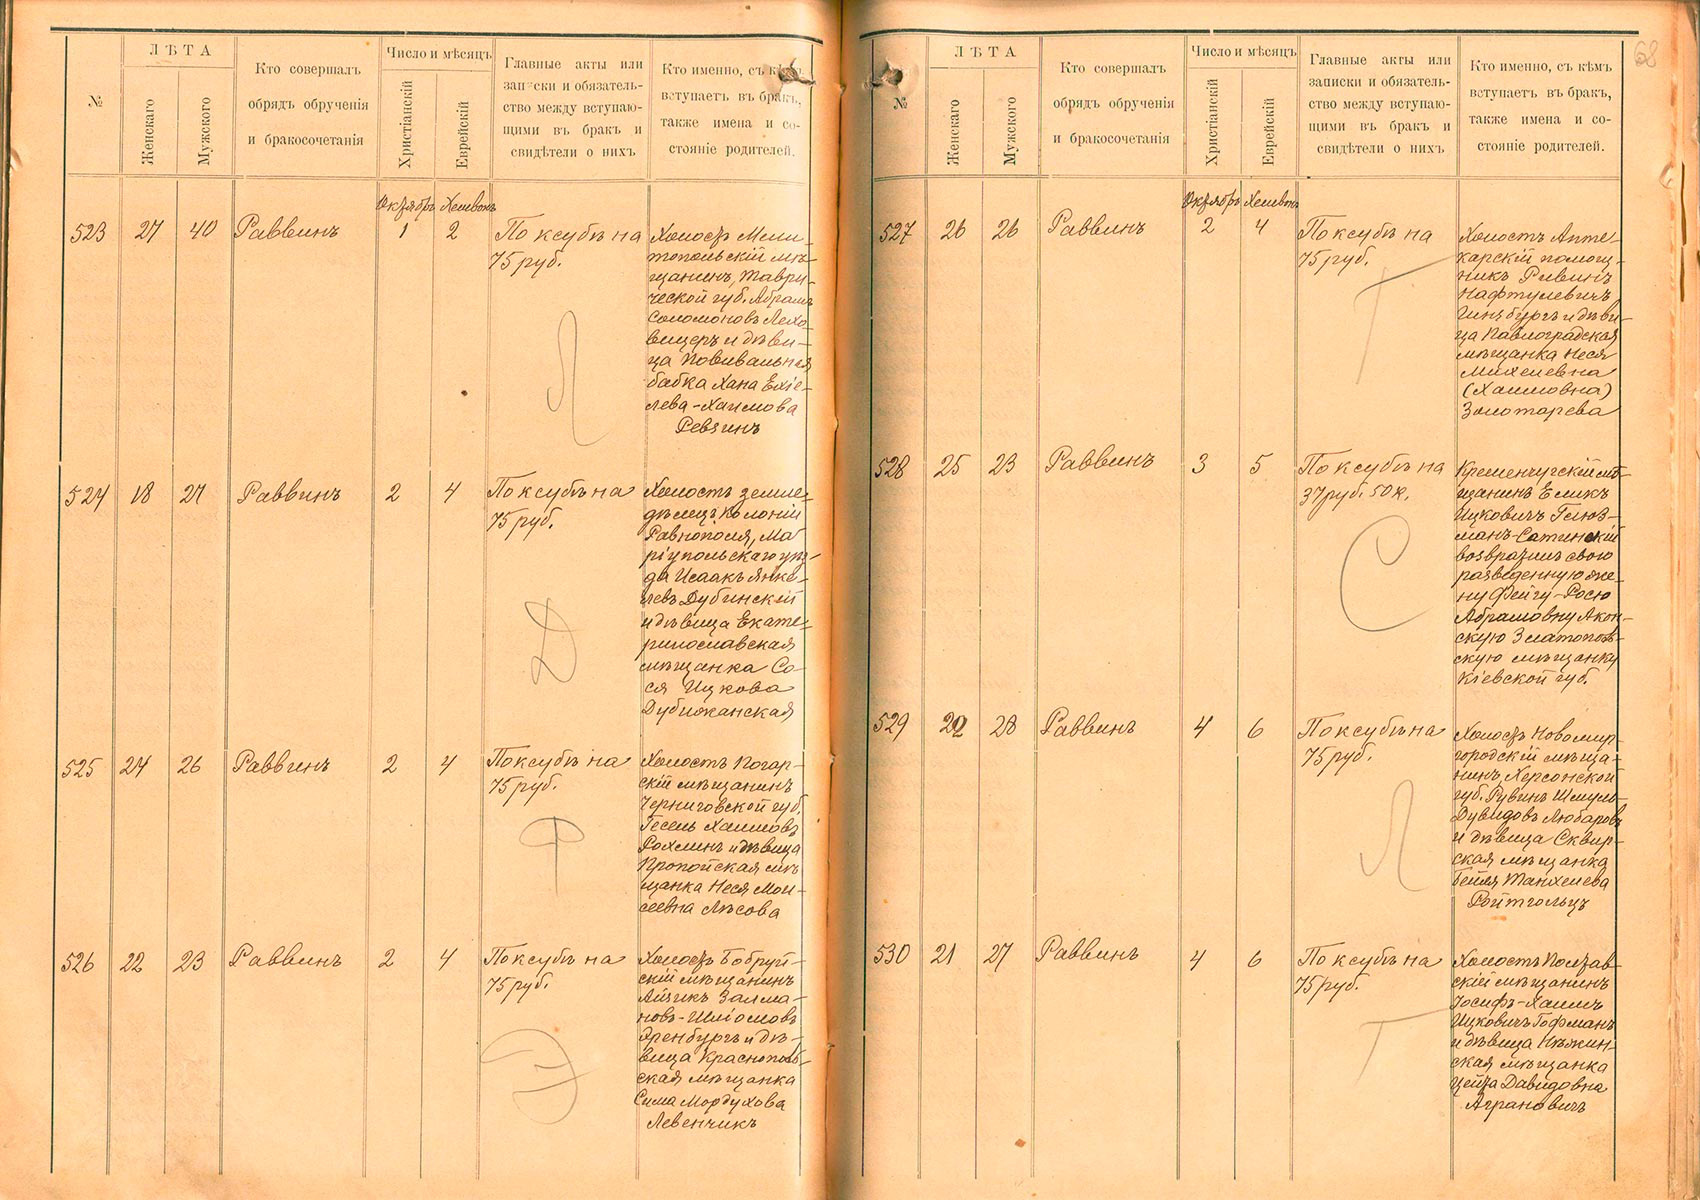 №
ЛѢТА
Женскаго
Мужского
Кто совершалъ
обрядъ обрученія
и бракосочетанія
Число и мѣсяцъ
Христіанскій
Еврейскій
Главные акты или
записки и обязатель-
ство между вступаю-
щими въ бракъ и
свидѣтели о нихъ
Кто именно, съ кѣмъ
вступаетъ въ бракъ,
также имена и со-
стояніе родителей.
Октябрь Хешвонъ
523 27 40 Раввинъ 1 2
По ксубѣ на
75 руб.
Л
Холостъ Мели-
топольскій мѣ-
щанинъ, Таври-
ческой губ. Абрамъ
Соломоновъ Лехо-
вицеръ и дѣви-
ца Повивальная
бабка Хана Ехіе-
лева-Хаимова
Ревзинъ
524 18 27 Раввинъ 2 4
По ксубѣ на
75 руб.
Д
Холостъ земле-
дѣлецъ колоніи
Равнополя, Ма-
ріупольскаго уѣз-
да Исаакъ Янке-
левъ Дубинскій
и дѣвица Екате-
ринославская
мѣщанка Со-
ся Ицкова
Дубижанская
525 24 26 Раввинъ 2 4
По ксубѣ на
75 руб.
Р
Холостъ Погар-
скій мѣщанинъ
Черниговской губ.
Гесель Хаимовъ
Рохлинъ и дѣвица
Пропойская мѣ-
щанка Неся Мои-
сеевна Лѣсова
526 22 23 Раввинъ 2 4
По ксубѣ на
75 руб.
Э
Холостъ Бобруй-
скій мѣщанинъ
Айзикъ Залма-
новъ-Шліомовъ
Эренбургъ и дѣ-
вица Краснополь-
ская мѣщанка
Сима Мордухова
Левенчикъ
68
№
ЛѢТА
Женскаго
Мужского
Кто совершалъ
обрядъ обрученія
и бракосочетанія
Число и мѣсяцъ
Христіанскій
Еврейскій
Главные акты или
записки и обязатель-
ство между вступаю-
щими въ бракъ и
свидѣтели о нихъ
Кто именно, съ кѣмъ
вступаетъ въ бракъ,
также имена и со-
стояніе родителей.
Октябрь Хешвонъ
527 26 26 Раввинъ 2 4
По ксубѣ на
75 руб.
Г
Холостъ Апте-
карскій помощ-
никъ Рувинъ
Нафтулевичъ
Гинзбургъ и дѣви-
ца Павлоградская
мѣщанка Неся
Михелевна
(Хаимовна)
Золотарева
528 25 23 Раввинъ 3 5
По ксубѣ на
37 руб. 50 к.
С
Кременчугскій мѣ-
щанинъ Еликъ
Ицковичъ Гелюз-
манъ-Сатинскій
возвратилъ свою
разведенную же-
ну Фейгу-Росю
Абрамовну Акон-
скую Златополь-
скую мѣщанку
Кіевской губ.
529 22 28 Раввинъ 4 6
По ксубѣ на
75 руб.
Л
Холостъ Новомир-
городскій мѣща-
нинъ, Херсонской
губ. Рувинъ Шмуль-
Дувидовъ Любаровъ
и дѣвица Сквир-
ская мѣщанка
Бейля Танхелева
Ройтгольцъ
530 21 27 Раввинъ 4 6
По ксубѣ на
75 руб.
Г
Холостъ Полтав-
скій мѣщанинъ
Іосифъ-Хаимъ
Ицковичъ Гофманъ
и дѣвица Нѣжин-
ская мѣщанка
Цейта Давидовна
Аграновичъ